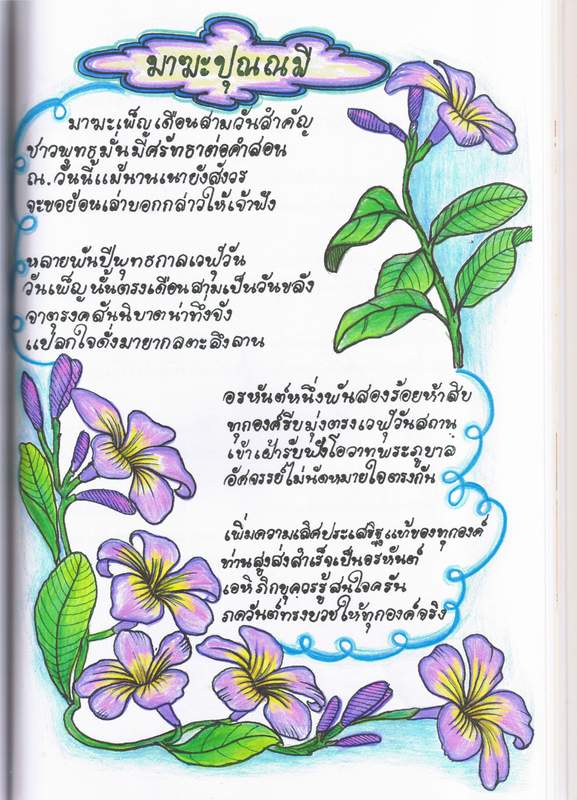 มาฆะปุณณมี
มาฆะเพ็ญเดือนสามวันสำคัญ
ชาวพุทธมั่นมีศรัทธาต่อคำสอน
ณ.วันนี้แม้นานเนายังสังวร
จะขอย้อนเล่าบอกกล่าวให้เจ้าฟัง
หลายพันปีพุทธกาลเวฬุวัน
วันเพ็ญนั้นตรงเดือนสามเป็นวันขลัง
จาตุรงคสันนิบาตน่าทึ่งจัง
แปลกใจดั่งมายากลตะลึงลาน
อรหันต์หนึ่งพันสองร้อยห้าสิบ
ทุกองค์รีบมุ่งตรงเวฬุวันสถาน
เข้าเฝ้ารับฟังโอวาทพระภูบาล
อัศจรรย์ไม่นัดหมายใจตรงกัน
เพิ่มความเลิศประเสริฐแท้ของทุกองค์
ท่านสูงส่งสำเร็จเป็นอรหันต์
เอหิภิกขุควรรู้สนใจครัน
ภควันต์ทรงบวชให้ทุกองค์จริง